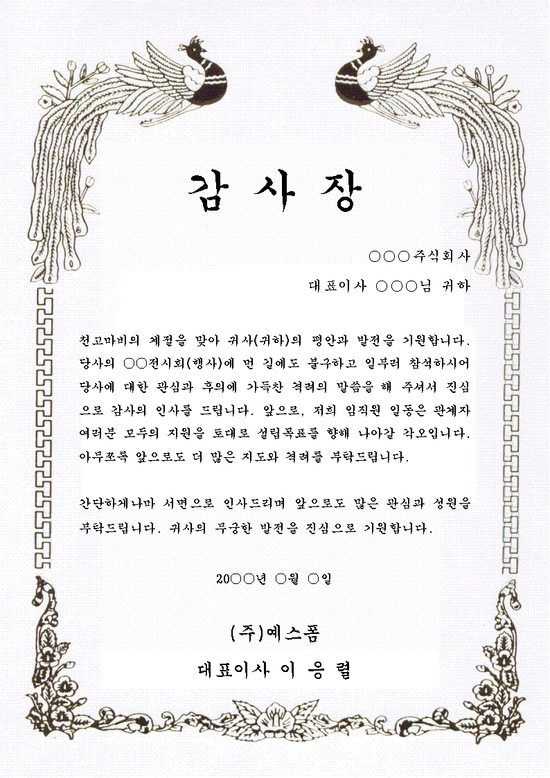 감 사 장
○○○주식회사
대표이사 ○○○님 귀하
천고마비의 계절을 맞아 귀사(귀하)의 평안과 발전을 기원합니다.
당사의 ○○전시회(행사)에 먼 길에도 불구하고 일부러 참석하시어
당사에 대한 관심과 후의에 가득찬 격려의 말씀을 해 주셔서 진심
으로 감사의 인사를 드립니다. 앞으로, 저희 임직원 일동은 관계자
여러분 모두의 지원을 토대로 설립목표를 향해 나아갈 각오입니다.
아무쪼록 앞으로도 더 많은 지도와 격려를 부탁드립니다.
간단하게나마 서면으로 인사드리며 앞으로도 많은 관심과 성원을
부탁드립니다. 귀사의 무궁한 발전을 진심으로 기원합니다.
20○○년 ○월 ○일
(주)예스폼
대표이사 이 응 렬